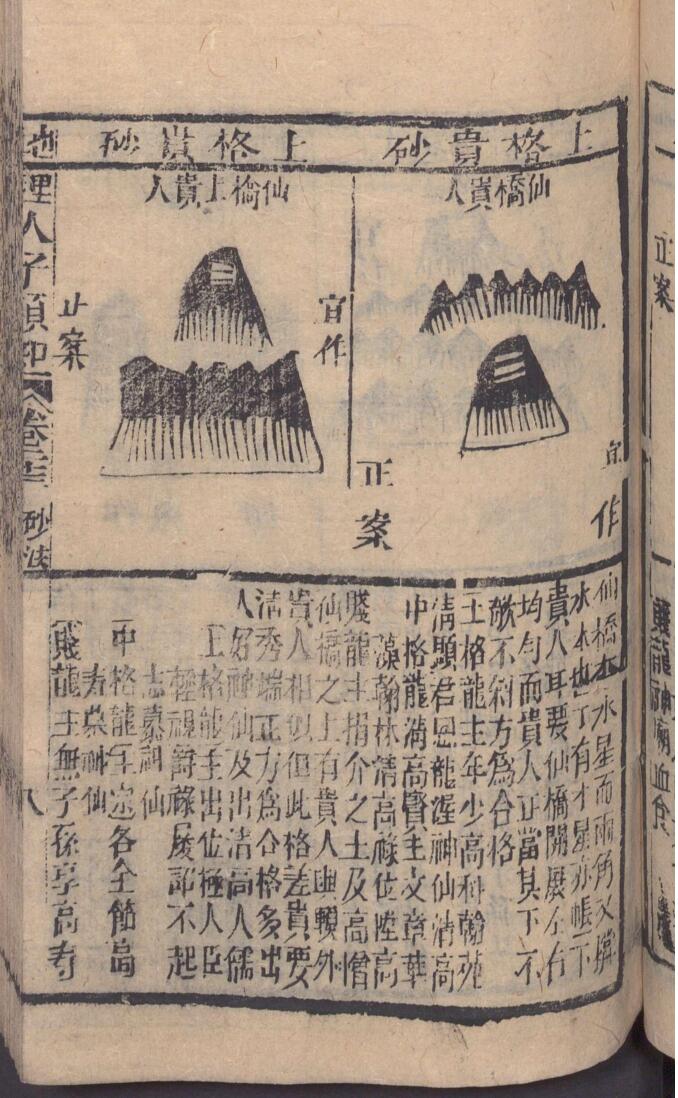 上格貴砂
上格貴砂
仙橋貴人
宜作
正案
仙橋上貴人
宜作
正案
仙橋本水星而兩角又撐
水木也了有才星亦帳下
貴人耳要仙橋開展左右
均勻而貴人正當其下不
欹不斜方為合格
上格龍主年少高科翰苑
清顯君恩龍渥神仙清高
中格龍清高賢主文章華
藻翰林清高祿位陞高
賤龍主捐介之士及高僧
仙橋之上有貴人幽類外
貴人相似但此格差貴要
清秀端正方為合格多出
人好神仙及出洁高人儒
上格龍主出位極人臣
輕視爵祿屢詔不起
志慕神仙
中格龍主 各全節高
壽慕神仙
賤龍主無子孫享高壽
地理人子須知 卷二十三 砂法
八
正案
龍神廟血食